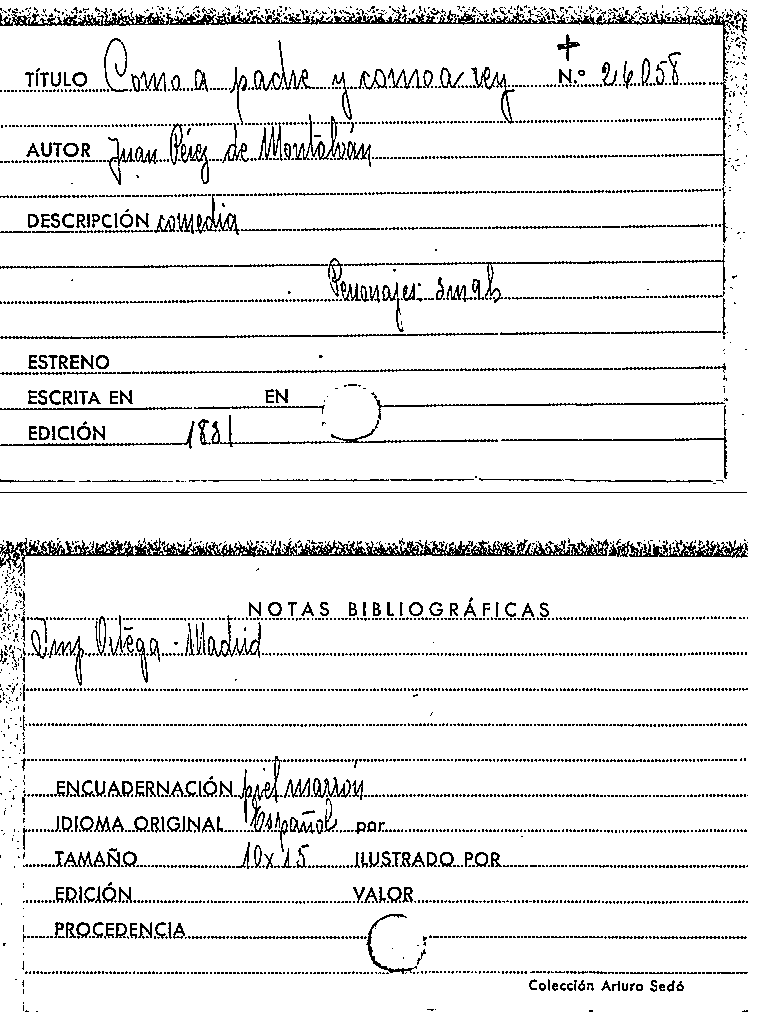 TÍTULO Como a padre y como a rey N.º 26058
AUTOR Juan Pérez de Montalván
DESCRIPCIÓN comedia
Personajes:
ESTRENO
ESCRITA EN EN
EDICIÓN 1881
NOTAS BIBLIOGRÁFICAS
Imp Ortega - Madrid
ENCUADERNACIÓN piel marrón
IDIOMA ORIGINAL Español por
TAMAÑO 10x15 ILUSTRADO POR
EDICIÓN VALOR
PROCEDENCIA
Colección Arturo Sedó